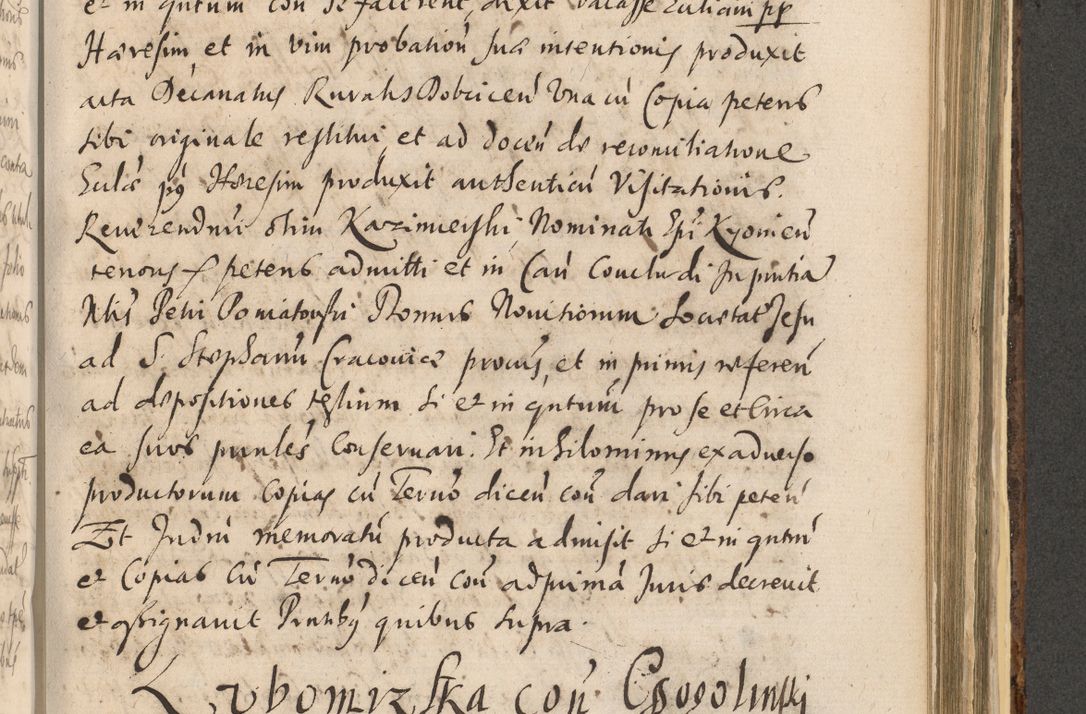 et in qntum con se facerent, dixit vacasse Eccliam pp
Hæresim, et in vim probation̄ suæ intentionis produxit
acta Decanatus Ruralis Dobcicen̄ Una cū Copia petens
sibi originale restitui, et ad docen̄ de reconciliatione
Ecclæ pp Hæresim produxit authenticū Visitationis.
Reverendmi olim Kazimierski Nominati Epi Kyovien̄
tenoris petens admitti et in Cau̅ Concludi In pntia
Nlis Petri Poniatowski Domus Novitiorum Societat Jesu
ad S. Stephanū Cracoviæ procris, et in primis referen̄
ad depositiones testium si et in qntum pro se et circa
ea suos pnntes conservari. Et nihilominus ex adverso
productorum copias cū Termō dicen̄ con̄ dari sibi peten̄
Et Indrū memoratū producta admisit si et in qntm
et Copias cū Termō dicen̄ con̄ ad primā Juris decrevit
et assignavit Pnntby quibus supra.
Lubomirska con̄ Ossolinski